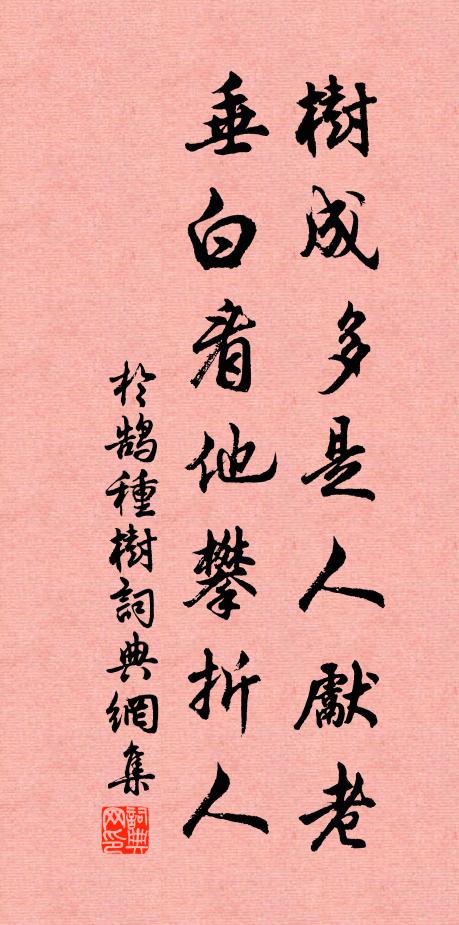 樹成多是人獻老
垂白看他攀折人
於鵠種樹詞典網集
詞典網印